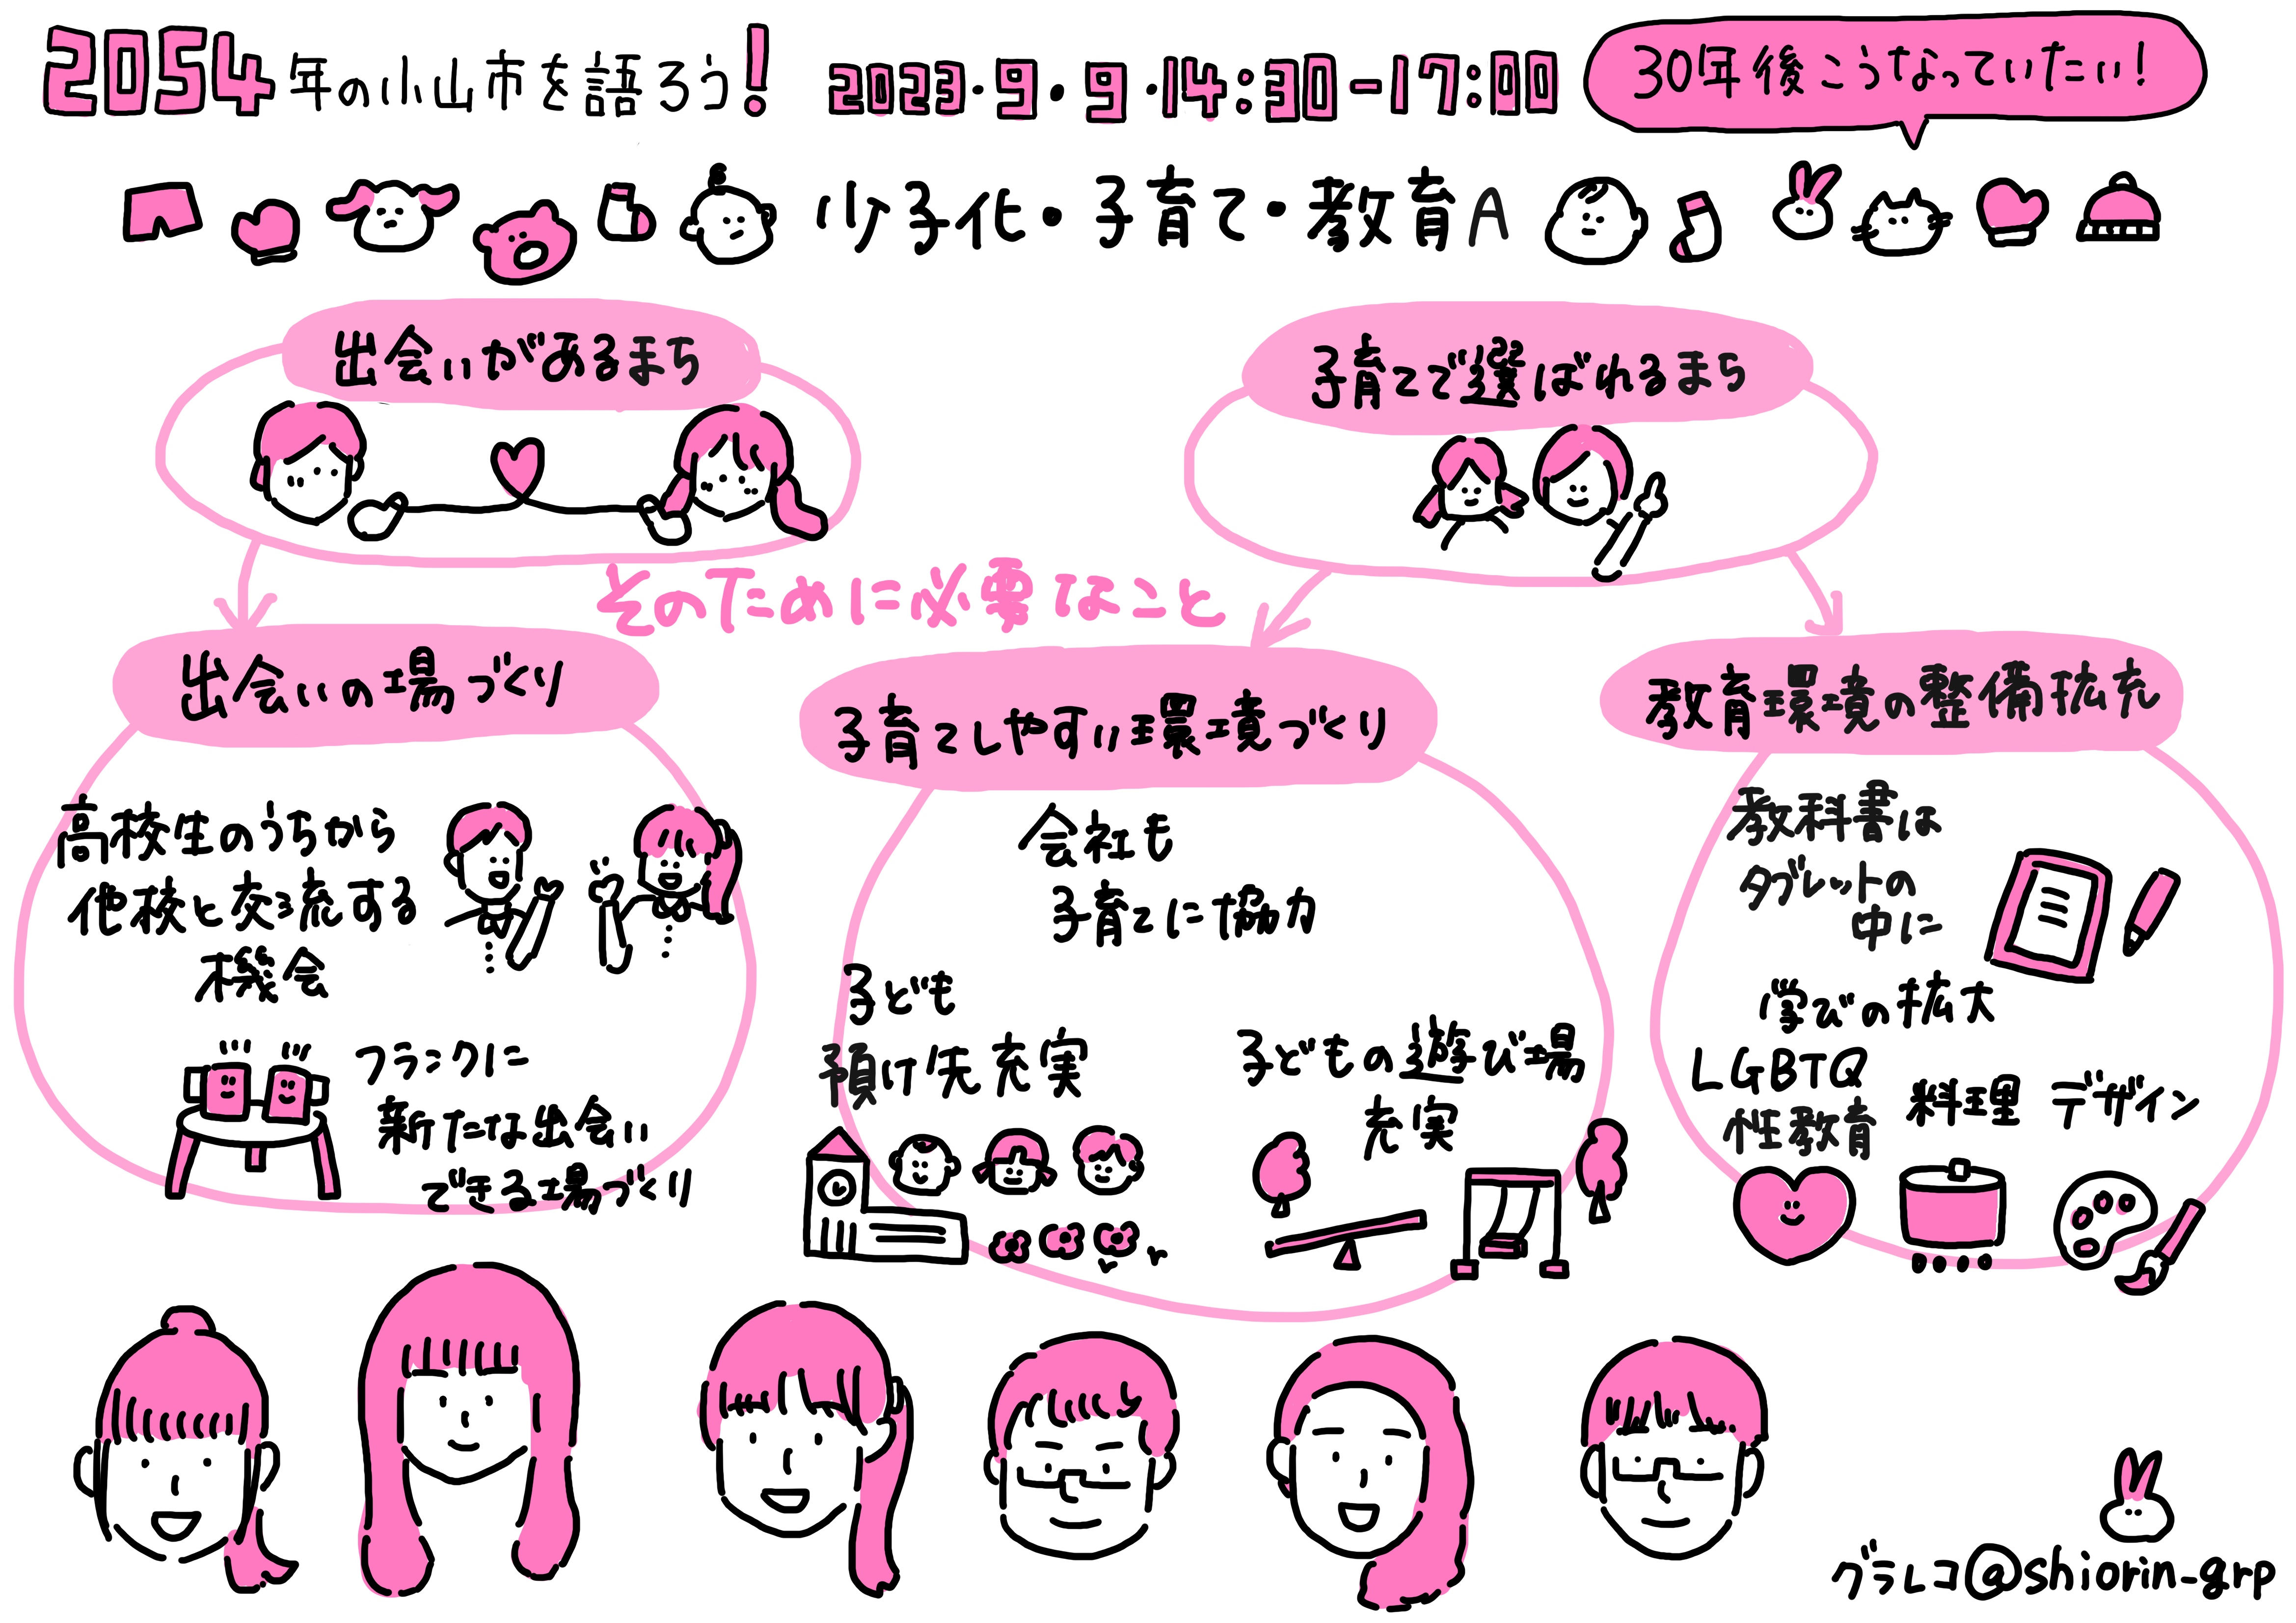 2054年の小山市を語ろう!
2023・9・9・14:30-17:00
30年後こうなっていたい!
少子化・子育て・教育A
出会いがあるまち
子育てで選ばれるまち
そのために必要なこと
出会いの場づくり
高校生のうちから
他校と交流する
機会
フランクに
新たな出会い
できる場づくり
子育てしやすい環境づくり
会社も
子育てに協力
子ども
預け先充実
子どもの遊び場
充実
教育環境の整備拡充
教科書は
タブレットの
中に
学びの拡大
LGBTQ
性教育
料理
デザイン
グラレコ@shiorin_grp